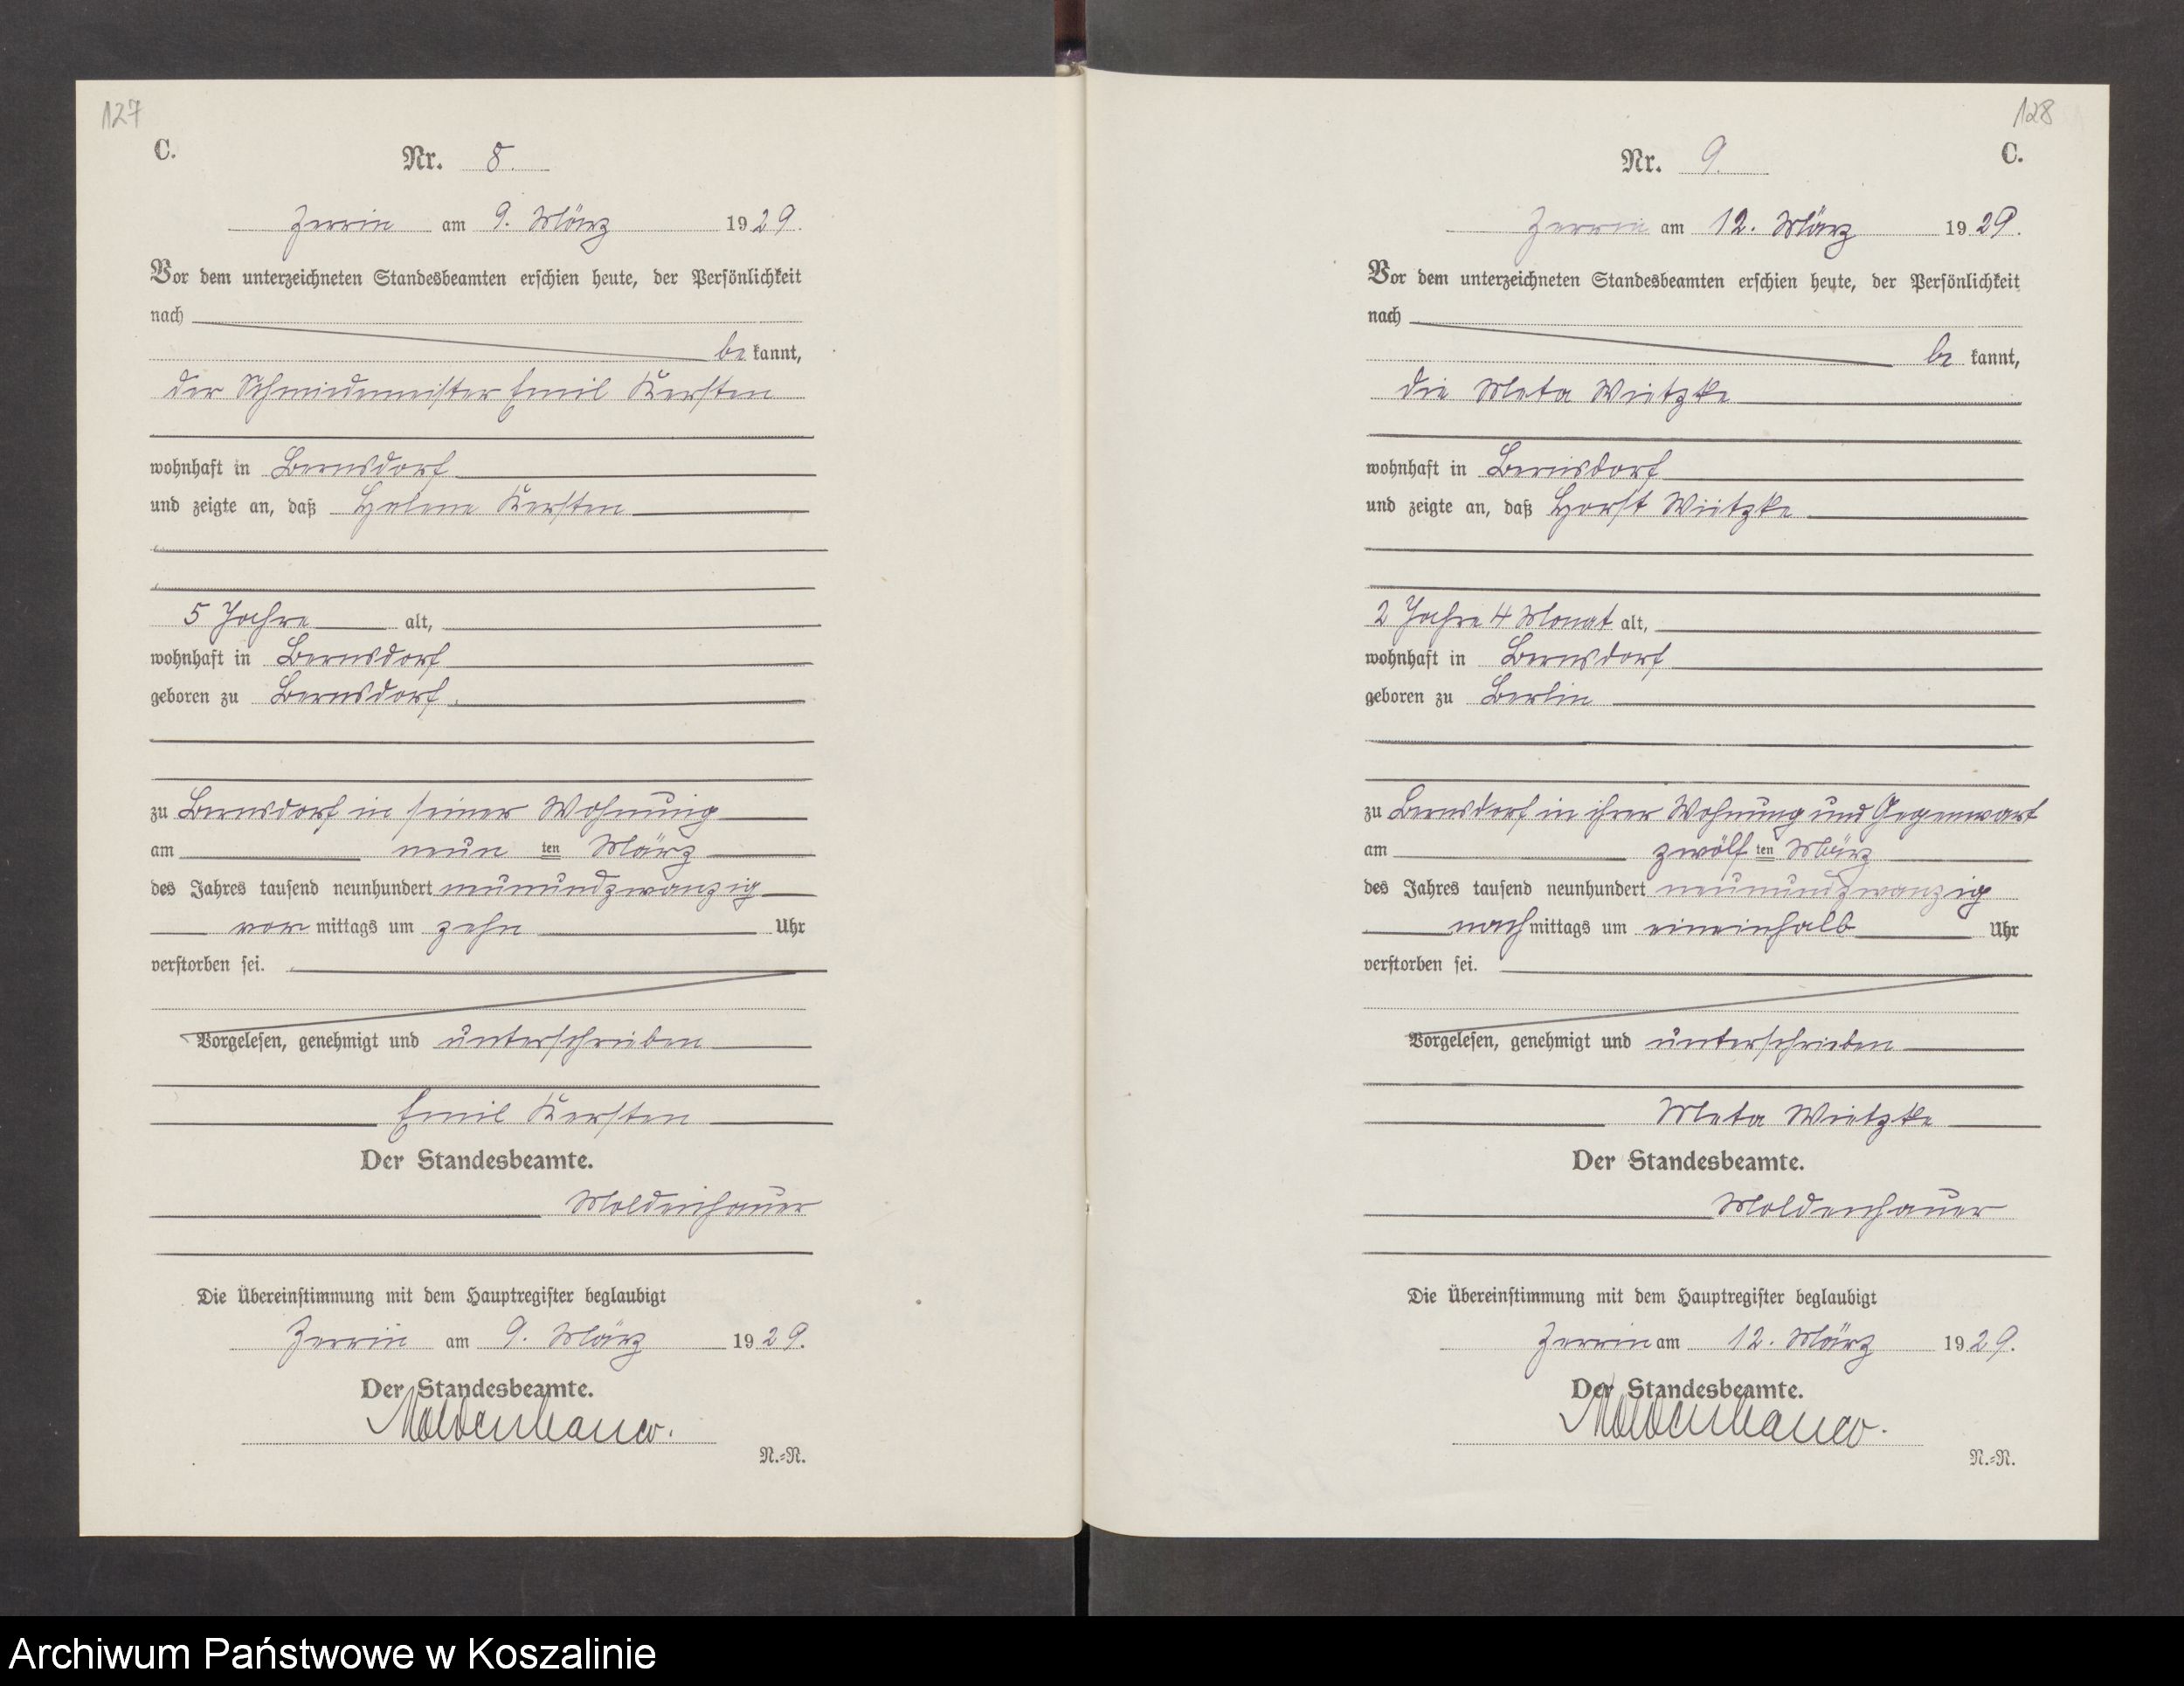 127
C.
Nr. 8.
Zerrin am 9. März 1929.
Vor dem unterzeichneten Standesbeamten erschien heute, der Persönlichkeit
nach
be kannt,
der Schmiedemeister Emil Kersten
wohnhaft in Bernsdorf
und zeigte an, daß Helene Kersten
5 Jahre alt,
wohnhaft in Bernsdorf
geboren zu Bernsdorf.
zu Bernsdorf in seiner Wohnung
am neun ten März
des Jahres tausend neunhundert neunundzwanzig
vor mittags um zehn Uhr
verstorben sei.
Vorgelesen, genehmigt und unterschrieben
Emil Kersten
Der Standesbeamte.
Moldenhauer
Die Übereinstimmung mit dem Hauptregister beglaubigt
Zerrin am 9. März 1929.
Der Standesbeamte.
Moldenhauer.
N.=N.
128
C.
Nr. 9.
Zerrin am 12. März 1929.
Vor dem unterzeichneten Standesbeamten erschien heute, der Persönlichkeit
nach
be kannt,
die Meta Wietzke
wohnhaft in Bernsdorf
und zeigte an, daß Horst Wietzke
2 Jahre 4 Monat alt,
wohnhaft in Bernsdorf
geboren zu Berlin
zu Bernsdorf in ihrer Wohnung und Gegenwart
am zwölf ten März
des Jahres tausend neunhundert neunundzwanzig
nach mittags um eineinhalb Uhr
verstorben sei.
Vorgelesen, genehmigt und unterschrieben
Meta Wietzke
Der Standesbeamte.
Moldenhauer
Die Übereinstimmung mit dem Hauptregister beglaubigt
Zerrin am 12. März 1929.
Der Standesbeamte.
Moldenhauer.
N.=N.
Archiwum Państwowe w Koszalinie